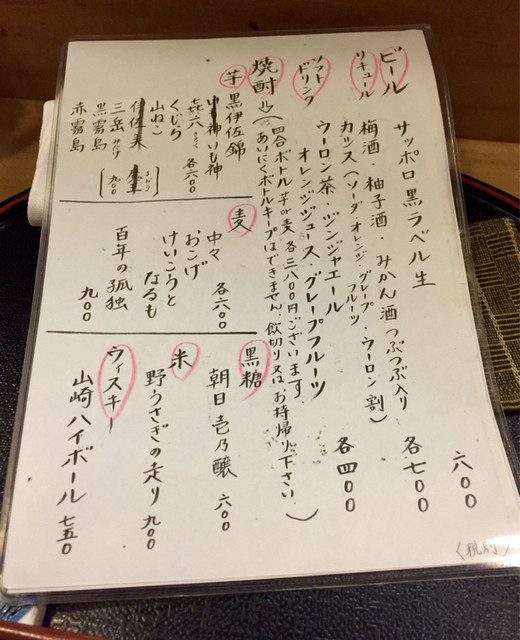 ビール
サッポロ黒ラベル生 六〇〇
リキュール
梅酒・柚子酒・みかん酒つぶつぶ入り 各七〇〇
カシス(ソーダ・オレンジ・グレープフルーツ・ウーロン割)
ソフトドリンク
ウーロン茶・ジンジャエール
オレンジジュース・グレープフルーツ 各四〇〇
焼酎 (四合ボトル芋or麦 各三八〇〇円ございます。
あいにくボトルキープはできません。飲切り又はお持帰り下さい。)
芋
黒伊佐錦
いも神
㐂六 きろく 各六〇〇
くじら
山ねこ
三岳 みたけ
黒霧島
赤霧島
九〇〇
麦
中々 各六〇〇
おこげ
けいこうとなるも
百年の孤独 九〇〇
黒糖
朝日 壱乃醸 六〇〇
米
野うさぎの走り 九〇〇
ウィスキー
山崎ハイボール 七五〇
(税別)